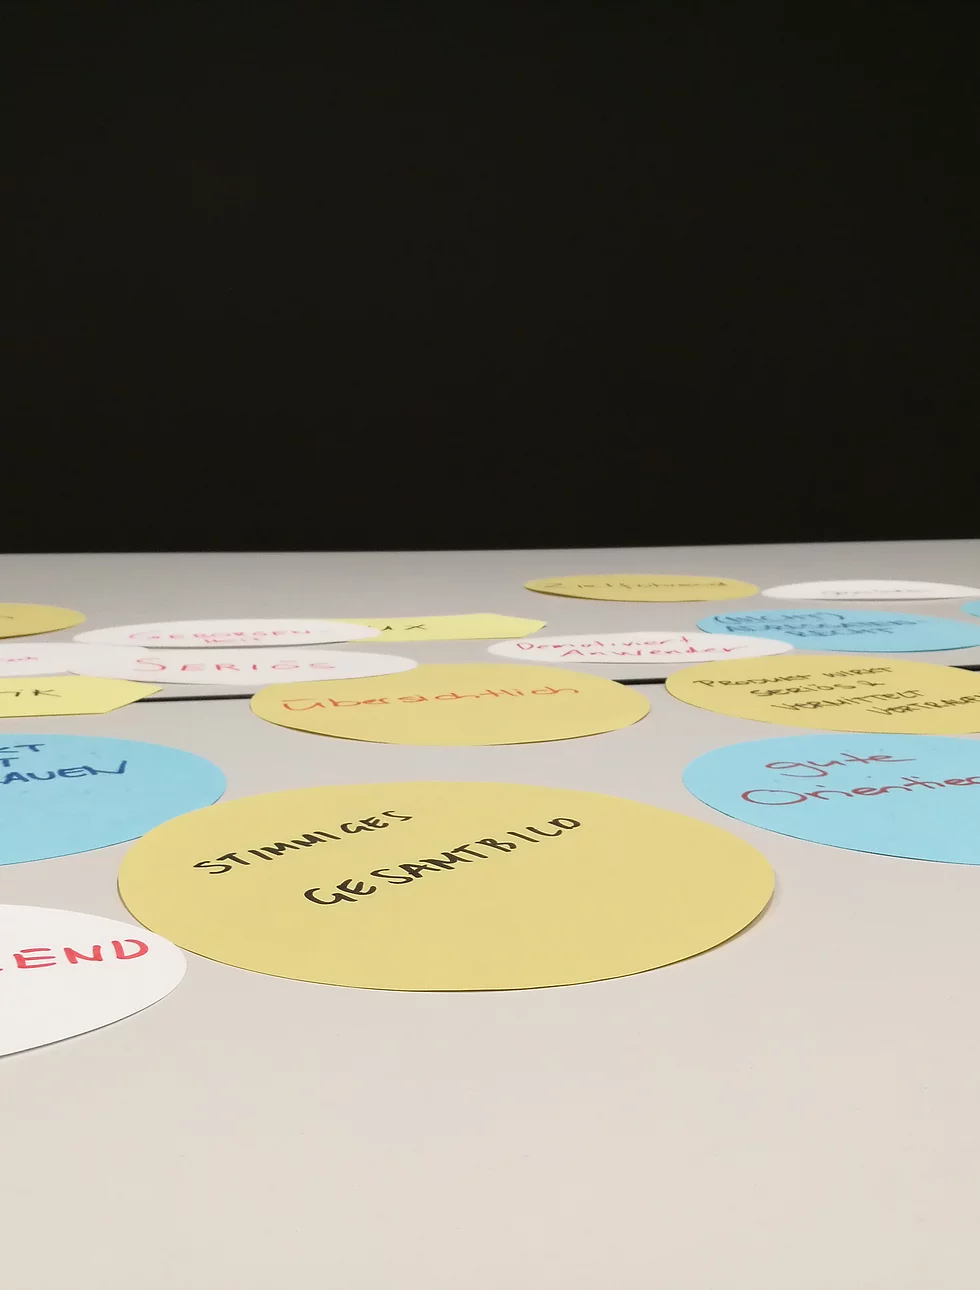 Zielführend
GEBORGEN
HEIT
UX
Demotiviert
Anwender
(NICHT)
SERIÖS
Übersichtlich
PRODUKT WIRKT
SERIÖS &
VERMITTELT
VERTRAUE
IK
KT
T
AUEN
gute
Orientier
STIMMIGES
GESAMTBILD
END